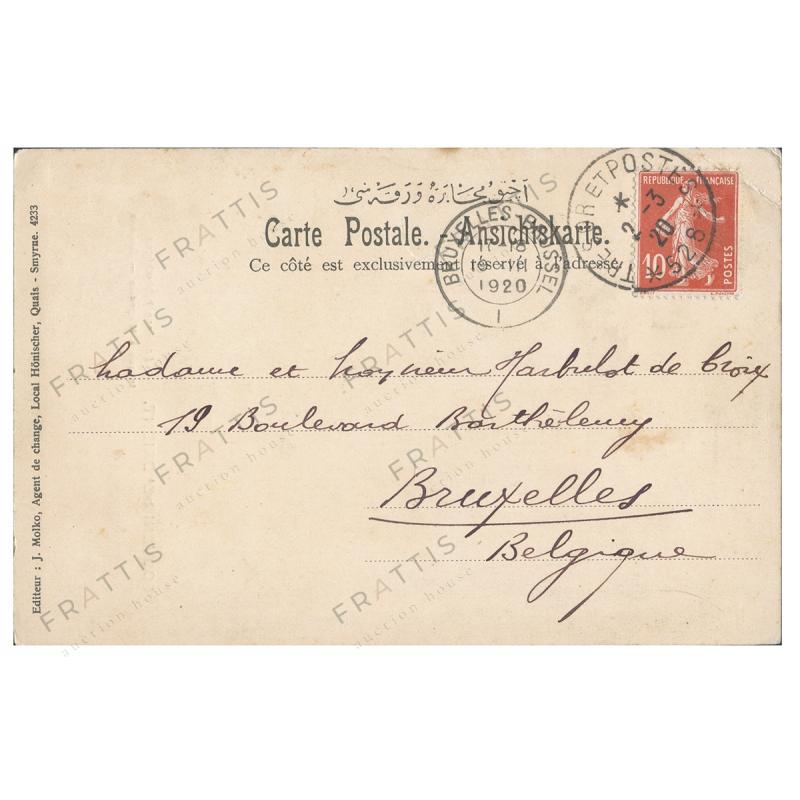 اچيق مخابره ورقه سى
Carte Postale. - Ansichtskarte.
Ce côté est exclusivement réservé à l'adresse.
REPUBLIQUE FRANÇAISE
10
POSTES
TRESOR ET POSTES
* 2-3 20 *
528
BRUXELLES BRUSSEL
1920
1
Madame et Monsieur Harbulot de Croix
19 Boulevard Barthélemy
Bruxelles
Belgique
Editeur : J. Molko, Agent de change, Local Hönischer, Quais - Smyrne. 4233
FRATTIS
auction house
FRATTIS
auction house
FRATTIS
auction house
FRATTIS
auction house
FRATTIS
auction house
FRATTIS
auction house
FRATTIS
auction house
FRATTIS
auction house